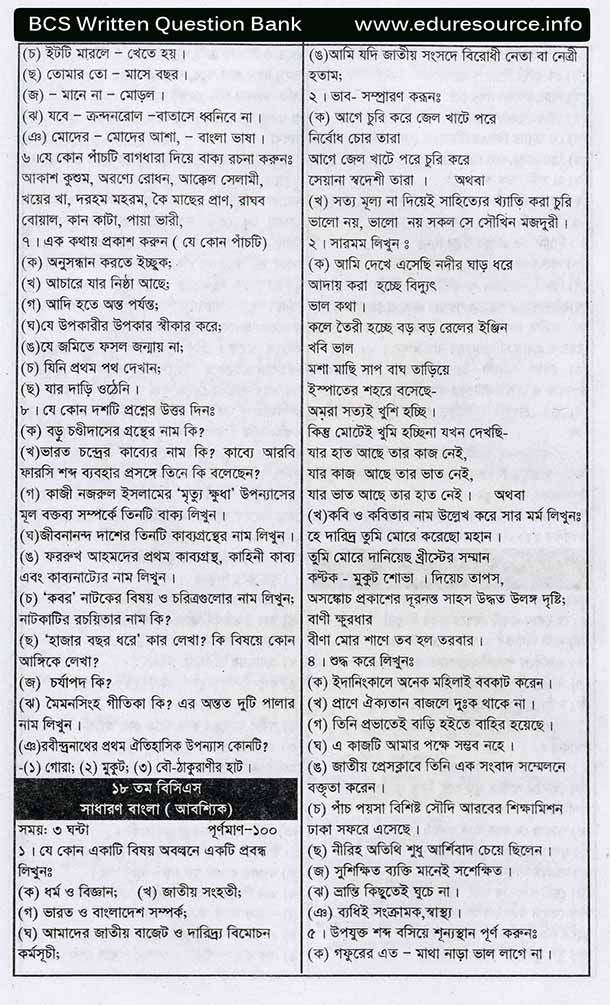 BCS Written Question Bank www.eduresource.info
(চ) ইটটি মারলে – খেতে হয়।
(ছ) তোমার তো – মাসে বছর।
(জ) – মানে না – মোড়ল।
(ঝ) যবে – ক্রন্দনরোল –বাতাসে ধ্বনিবে না।
(ঞ) মোদের – মোদের আশা, – বাংলা ভাষা।
৬।যে কোন পাঁচটি বাগধারা দিয়ে বাক্য রচনা করুনঃ
আকাশ কুশুম, অরণ্যে রোধন, আক্কেল সেলামী,
খয়ের খা, দরহম মহরম, কৈ মাছের প্রাণ, রাঘব
বোয়াল, কান কাটা, পায়া ভারী,
৭। এক কথায় প্রকাশ করুন ( যে কোন পাঁচটি)
(ক) অনুসন্ধান করতে ইচ্ছুক;
(খ) আচারে যার নিষ্ঠা আছে;
(গ) আদি হতে অন্ত পর্যন্ত;
(ঘ)যে উপকারীর উপকার স্বীকার করে;
(ঙ)যে জমিতে ফসল জন্মায় না;
(চ) যিনি প্রথম পথ দেখান;
(ছ) যার দাড়ি ওঠেনি।
৮। যে কোন দশটি প্রশ্নের উত্তর দিনঃ
(ক) বড়ু চণ্ডীদাসের গ্রন্থের নাম কি?
(খ)ভারত চন্দ্রের কাব্যের নাম কি? কাব্যে আরবি
ফারসি শব্দ ব্যবহার প্রসঙ্গে তিনে কি বলেছেন?
(গ) কাজী নজরুল ইসলামের ‘মৃত্যু ক্ষুধা’ উপন্যাসের
মূল বক্তব্য সম্পর্কে তিনটি বাক্য লিখুন।
(ঘ)জীবনানন্দ দাশের তিনটি কাব্যগ্রন্থের নাম লিখুন।
(ঙ) ফররুখ আহমদের প্রথম কাব্যগ্রন্থ, কাহিনী কাব্য
এবং কাব্যনাট্যের নাম লিখুন।
(চ) ‘কবর’ নাটকের বিষয় ও চরিত্রগুলোর নাম লিখুন;
নাটকাটির রচয়িতার নাম কি?
(ছ) ‘হাজার বছর ধরে’ কার লেখা? কি বিষয়ে কোন
আঙ্গিকে লেখা?
(জ) চর্যাপদ কি?
(ঝ) মৈমনসিংহ গীতিকা কি? এর অন্তত দুটি পালার
নাম লিখুন।
(ঞ)রবীন্দ্রনাথের প্রথম ঐতিহাসিক উপন্যাস কোনটি?
-(১) গোরা; (২) মুকুট; (৩) বৌ-ঠাকুরাণীর হাট।
১৮ তম বিসিএস
সাধারণ বাংলা ( আবশ্যিক)
সময়: ৩ ঘন্টা পূর্ণমাণ–১০০
১। যে কোন একাটি বিষয় অবল্বনে একটি প্রবন্ধ
লিখুনঃ
(ক) ধর্ম ও বিজ্ঞান; (খ) জাতীয় সংহতী;
(গ) ভারত ও বাংলাদেশ সম্পর্ক;
(ঘ) আমাদের জাতীয় বাজেট ও দারিদ্র্য বিমোচন
কর্মসূচী;
(ঙ)আমি যদি জাতীয় সংসদে বিরোধী নেতা বা নেত্রী
হতাম;
২। ভাব- সম্প্রারণ করূনঃ
(ক) আগে চুরি করে জেল খাটে পরে
নির্বোধ চোর তারা
আগে জেল খাটে পরে চুরি করে
সেয়ানা স্বদেশী তারা। অথবা
(খ) সত্য মূল্য না দিয়েই সাহিত্যের খ্যাতি করা চুরি
ভালো নয়, ভালো নয় সকল সে সৌখিন মজদুরী।
২। সারমম লিখুন ঃ
(ক) আমি দেখে এসেছি নদীর ঘাড় ধরে
আদায় করা হচ্ছে বিদ্যুৎ
ভাল কথা।
কলে তৈরী হচ্ছে বড় বড় রেলের ইঞ্জিন
খবি ভাল
মশা মাছি সাপ বাঘ তাড়িয়ে
ইস্পাতের শহরে বসেছে-
অমরা সত্যই খুশি হচ্ছি।
কিন্তু মোটেই খুমি হচ্ছিনা যখন দেখছি-
যার হাত আছে তার কাজ নেই,
যার কাজ আছে তার ভাত নেই,
যার ভাত আছে তার হাত নেই। অথবা
(খ)কবি ও কবিতার নাম উল্লেখ করে সার মর্ম লিখুনঃ
হে দারিদ্র তুমি মোরে করেছো মহান।
তুমি মোরে দানিয়েছ খ্রীস্টের সম্মান
কন্টক - মুকুট শোভা । দিয়েচ তাপস,
অসঙ্কোচ প্রকাশের দূরন্ত সাহস উদ্ধত উলঙ্গ দৃষ্টি;
বাণী ক্ষুরধার
বীণা মোর শাণে তব হল তরবার।
৪। শুদ্ধ করে লিখুনঃ
(ক) ইদানিংকালে অনেক মহিলাই ববকাট করেন।
(খ) প্রাণে ঐক্যতান বাজলে দুঃক থাকে না।
(গ) তিনি প্রভাতেই বাড়ি হইতে বাহির হয়েছে।
(ঘ) এ কাজটি আমার পক্ষে সম্ভব নহে।
(ঙ) জাতীয় প্রেসক্লাবে তিনি এক সংবাদ সম্মেলনে
বক্তৃতা করেন।
(চ) পাঁচ পয়সা বিশিষ্ট সৌদি আরবের শিক্ষামিশন
ঢাকা সফরে এসেছে।
(ছ) নীরিহ অতিথি শুধু আর্শিবাদ চেয়ে ছিলেন।
(জ) সুশিক্ষিত ব্যক্তি মানেই সশেক্ষিত।
(ঝ) ভ্রান্তি কিছুতেই ঘুচে না।
(ঞ) ব্যধিই সংক্রামক,স্বাস্থ্য।
৫ । উপযুক্ত শব্দ বসিয়ে শূন্যস্থান পূর্ণ করুনঃ
(ক) গফুরের এত – মাথা নাড়া ভাল লাগে না।